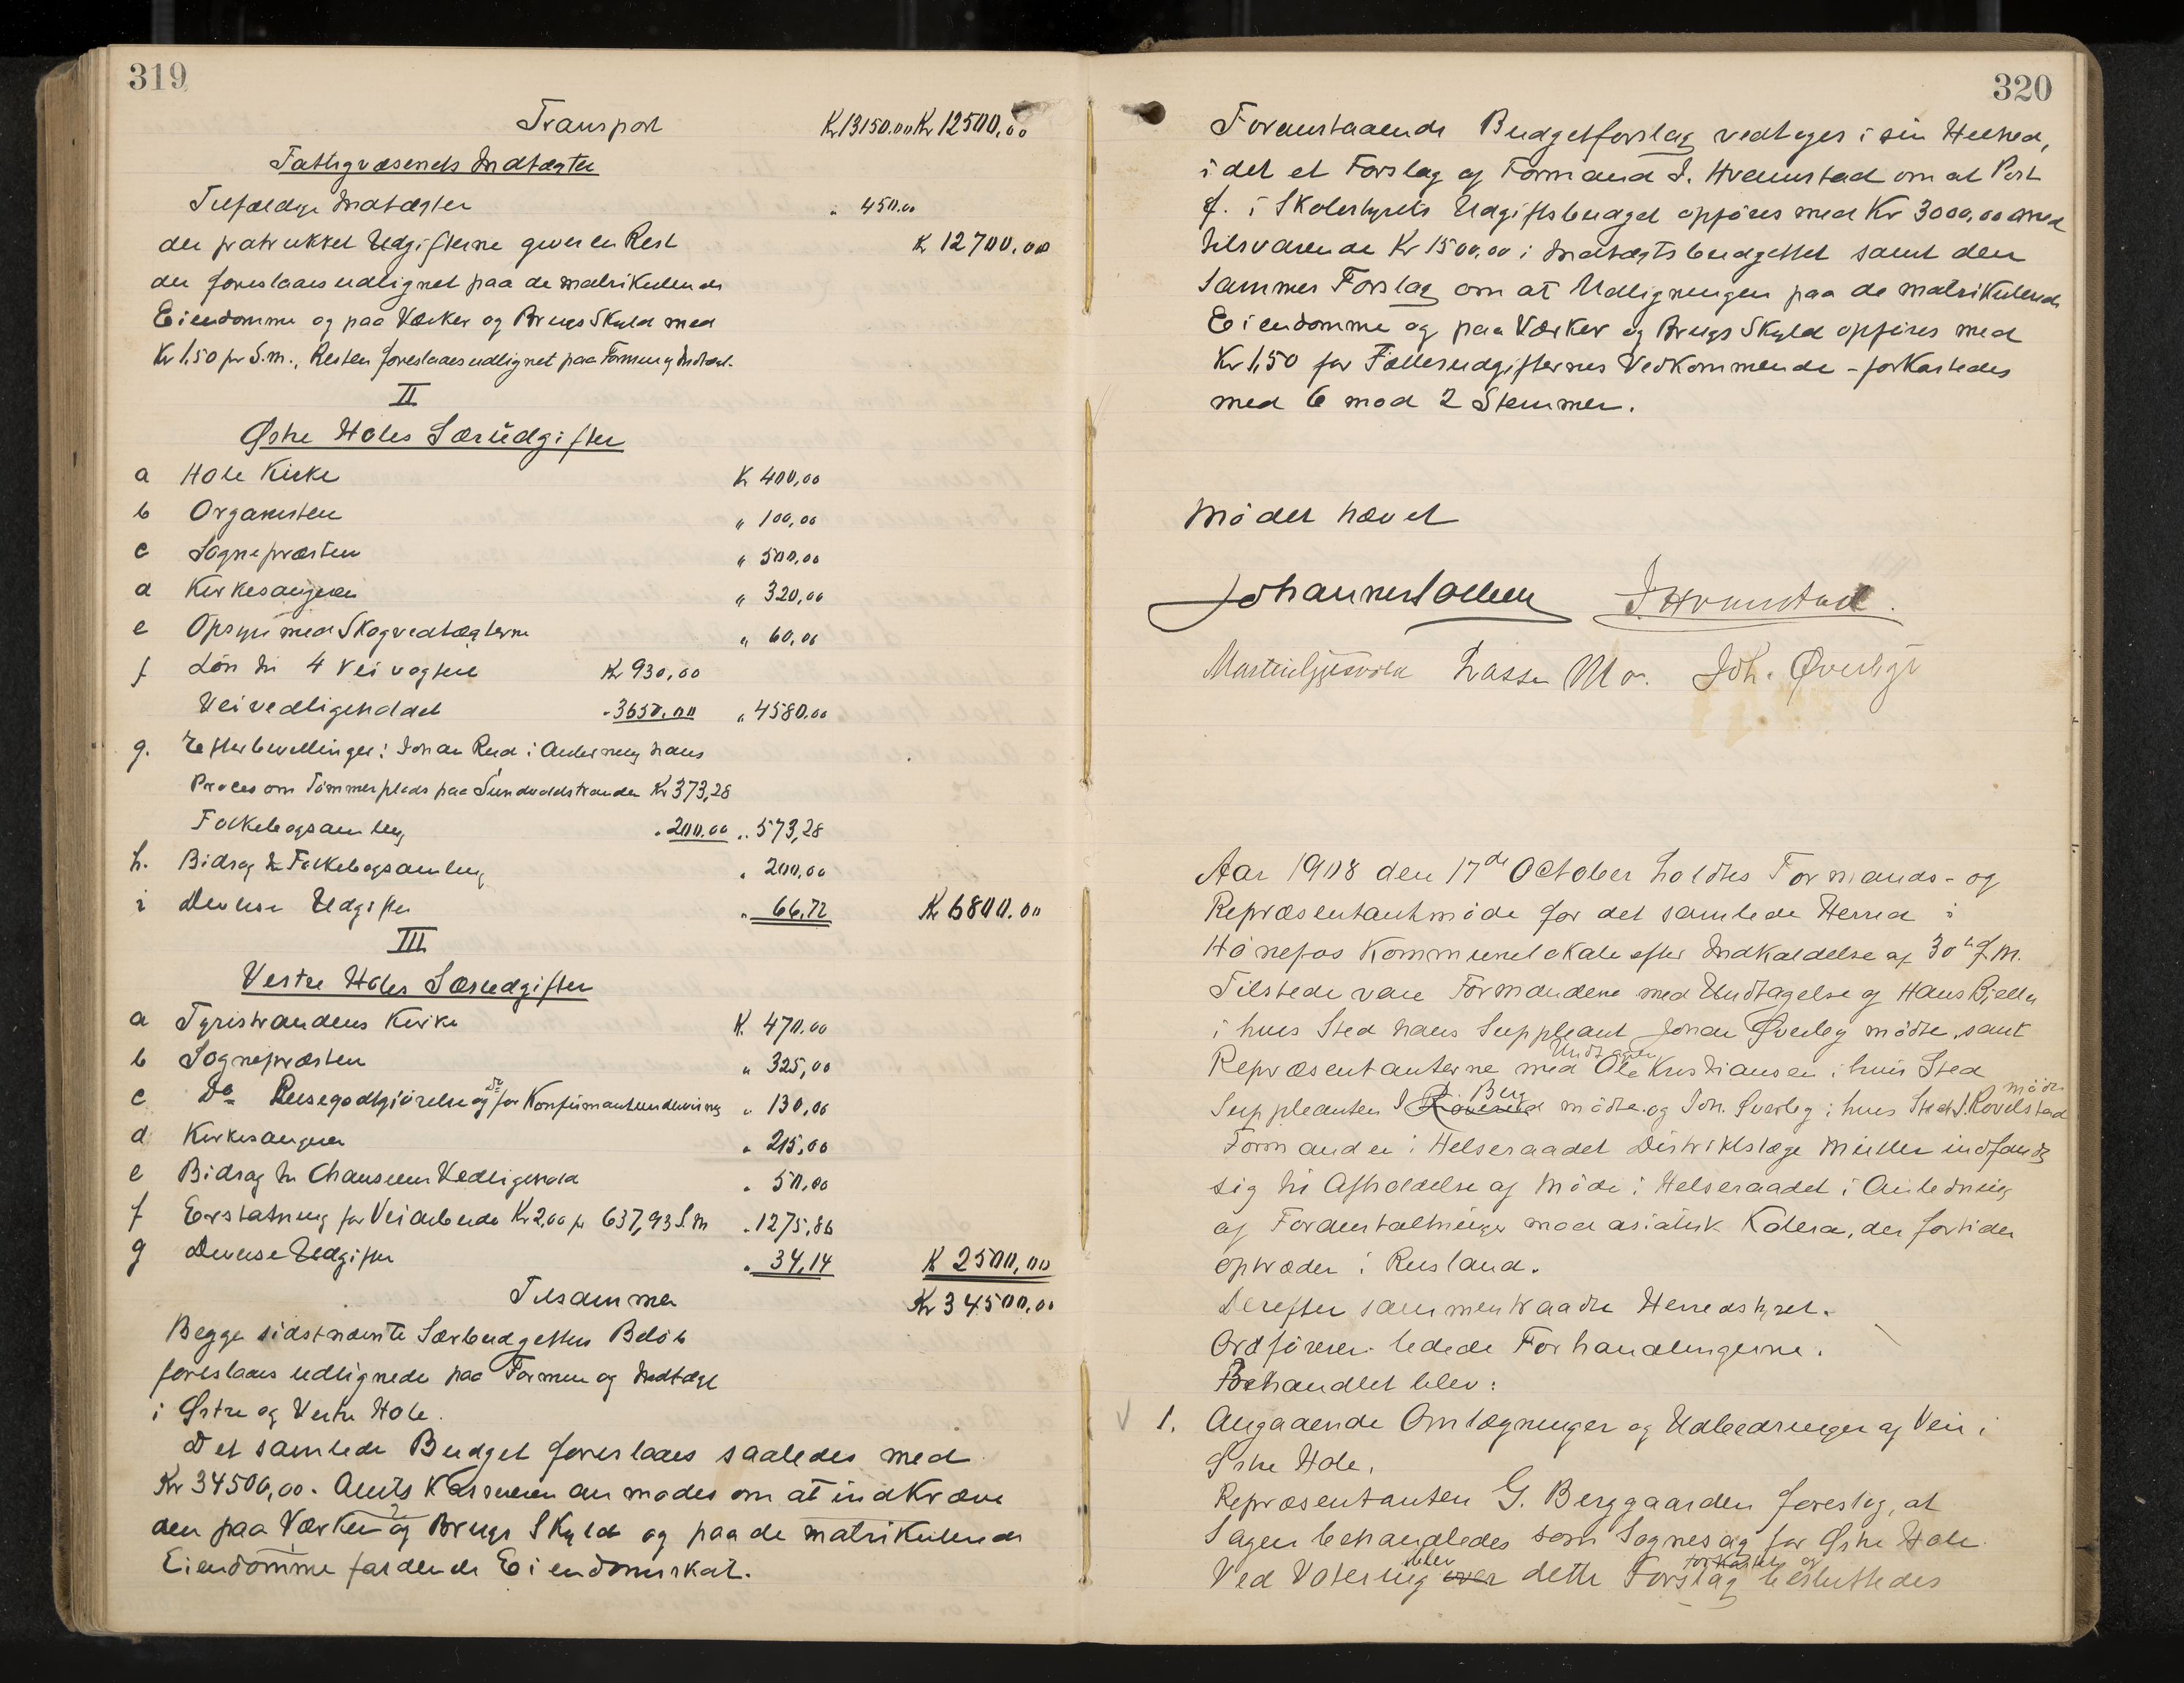 319
Transport Kr 13150.00 Kr 12500,00
Fattigvæsenets Indtægter
Tilfældige Indtægter " 450.00
der fratrukket Udgifterne giver en Rest K 12700.00
der foreslaaes udlignet paa de matrikulerede
Eiendomme og paa Værker og Brugs Skyld med
Kr 1.50 pr S.m., Resten foreslaaes udlignet paa Formue og Indtægt.
II
Østre Holes Særudgifter
a Hole Kirke K 400,00
b Organisten " 100,00
c Sognepræsten " 500,00
d Kirkesangeren " 320,00
e Opsyn med Skogvedtægterne " 60,00
f Løn til 4 Veivogtere Kr 930,00
Veivedligeholdet - 3650.00 " 4580.00
g. Efterbevillinger: Johan Rud i Anledning hans
Proces om Tømmerplads paa Sundvoldstranden Kr 373,28
Folkebogsamling " 200.00 " 573,28
h. Bidrag til Folkebogsamling " 200,00
i Diverse Udgifter " 66,72 Kr 6800.00
III
Vestre Holes Særudgifter
a Tyristrandens Kirke K. 470.00
b Sognepræsten " 325,00
c Do Reisegodtgjørelse og do for Konfirmantundervisning " 130,00
d Kirkesangeren " 215,00
e Bidrag til Chausseens Vedligehold " 50.00
f Erstatning for Veiarbeide Kr 2,00 pr 637,93 S.m " 1275,86
g Diverse Udgifter " 34,14 K 2500,00
Tilsammen Kr 34500,00
Begge sidstnævnte Særbudgetters Beløb
foreslaaes udlignede paa Formue og Indtægt
i Østre og Vestre Hole.
Det samlede Budget foreslaaes saaledes med
Kr 34500,00. Amts Kassereren anmodes om at indkræve
den paa Værker og Brugs Skyld og paa de matrikulerede
Eiendomme faldende Eiendomsskat.
320
Foranstaaende Budgetforslag vedtoges i sin Helhed,
idet et Forslag af Formand J. Hvamstad om at Post
f. i Skolestyrets Udgiftsbudget opføres med Kr 3000,00 med
tilsvarende Kr 1500,00 i Indtægtsbudgettet samt den
sammes Forslag om at Udligningen paa de matrikulerede
Eiendomme og paa Værker og Brugs Skyld opføres med
Kr 1,50 for Fællesudgifternes Vedkommende - forkastedes
med 6 mod 2 Stemmer.
Mødet hævet
Johannes Sollien J Hvamstad.
Martin Gjesvold Lasse Mo. Joh. Øverby
Aar 1908 den 17de October holdtes Formands- og
Repræsentantmøde for det samlede Herred i
Hønefos Kommunelokale efter Indkaldelse af 30te f.M.
Tilstede vare Formændene med Undtagelse af Hans Bjella
i hvis Sted hans Suppleant Johan Øverby mødte, samt
Repræsentanterne med Undtagen Ole Kristiansen i hvis Sted
Suppleanten J Berg mødte og Joh. Øverby i hvis Sted J. Rovelstad mødte
Formanden i Helseraadet Distriktslæge Müller indfandt
sig til Afholdelse af Møde i Helseraadet i Anledning
af Foranstaltninger mod asiatisk Kolera, der for tiden
optræder i Rusland.
Derefter sammentraadte Herredstyret.
Ordføreren ledede Forhandlingerne.
Behandlet blev:
1. Angaaende Omlægninger og Udbedringer af Vei i
Østre Hole.
Repræsentanten G. Berggaarden foreslog, at
Sagen behandledes som Sognesag for Østre Hole
Ved Votering over blev dette Forslag forkastet og besluttedes